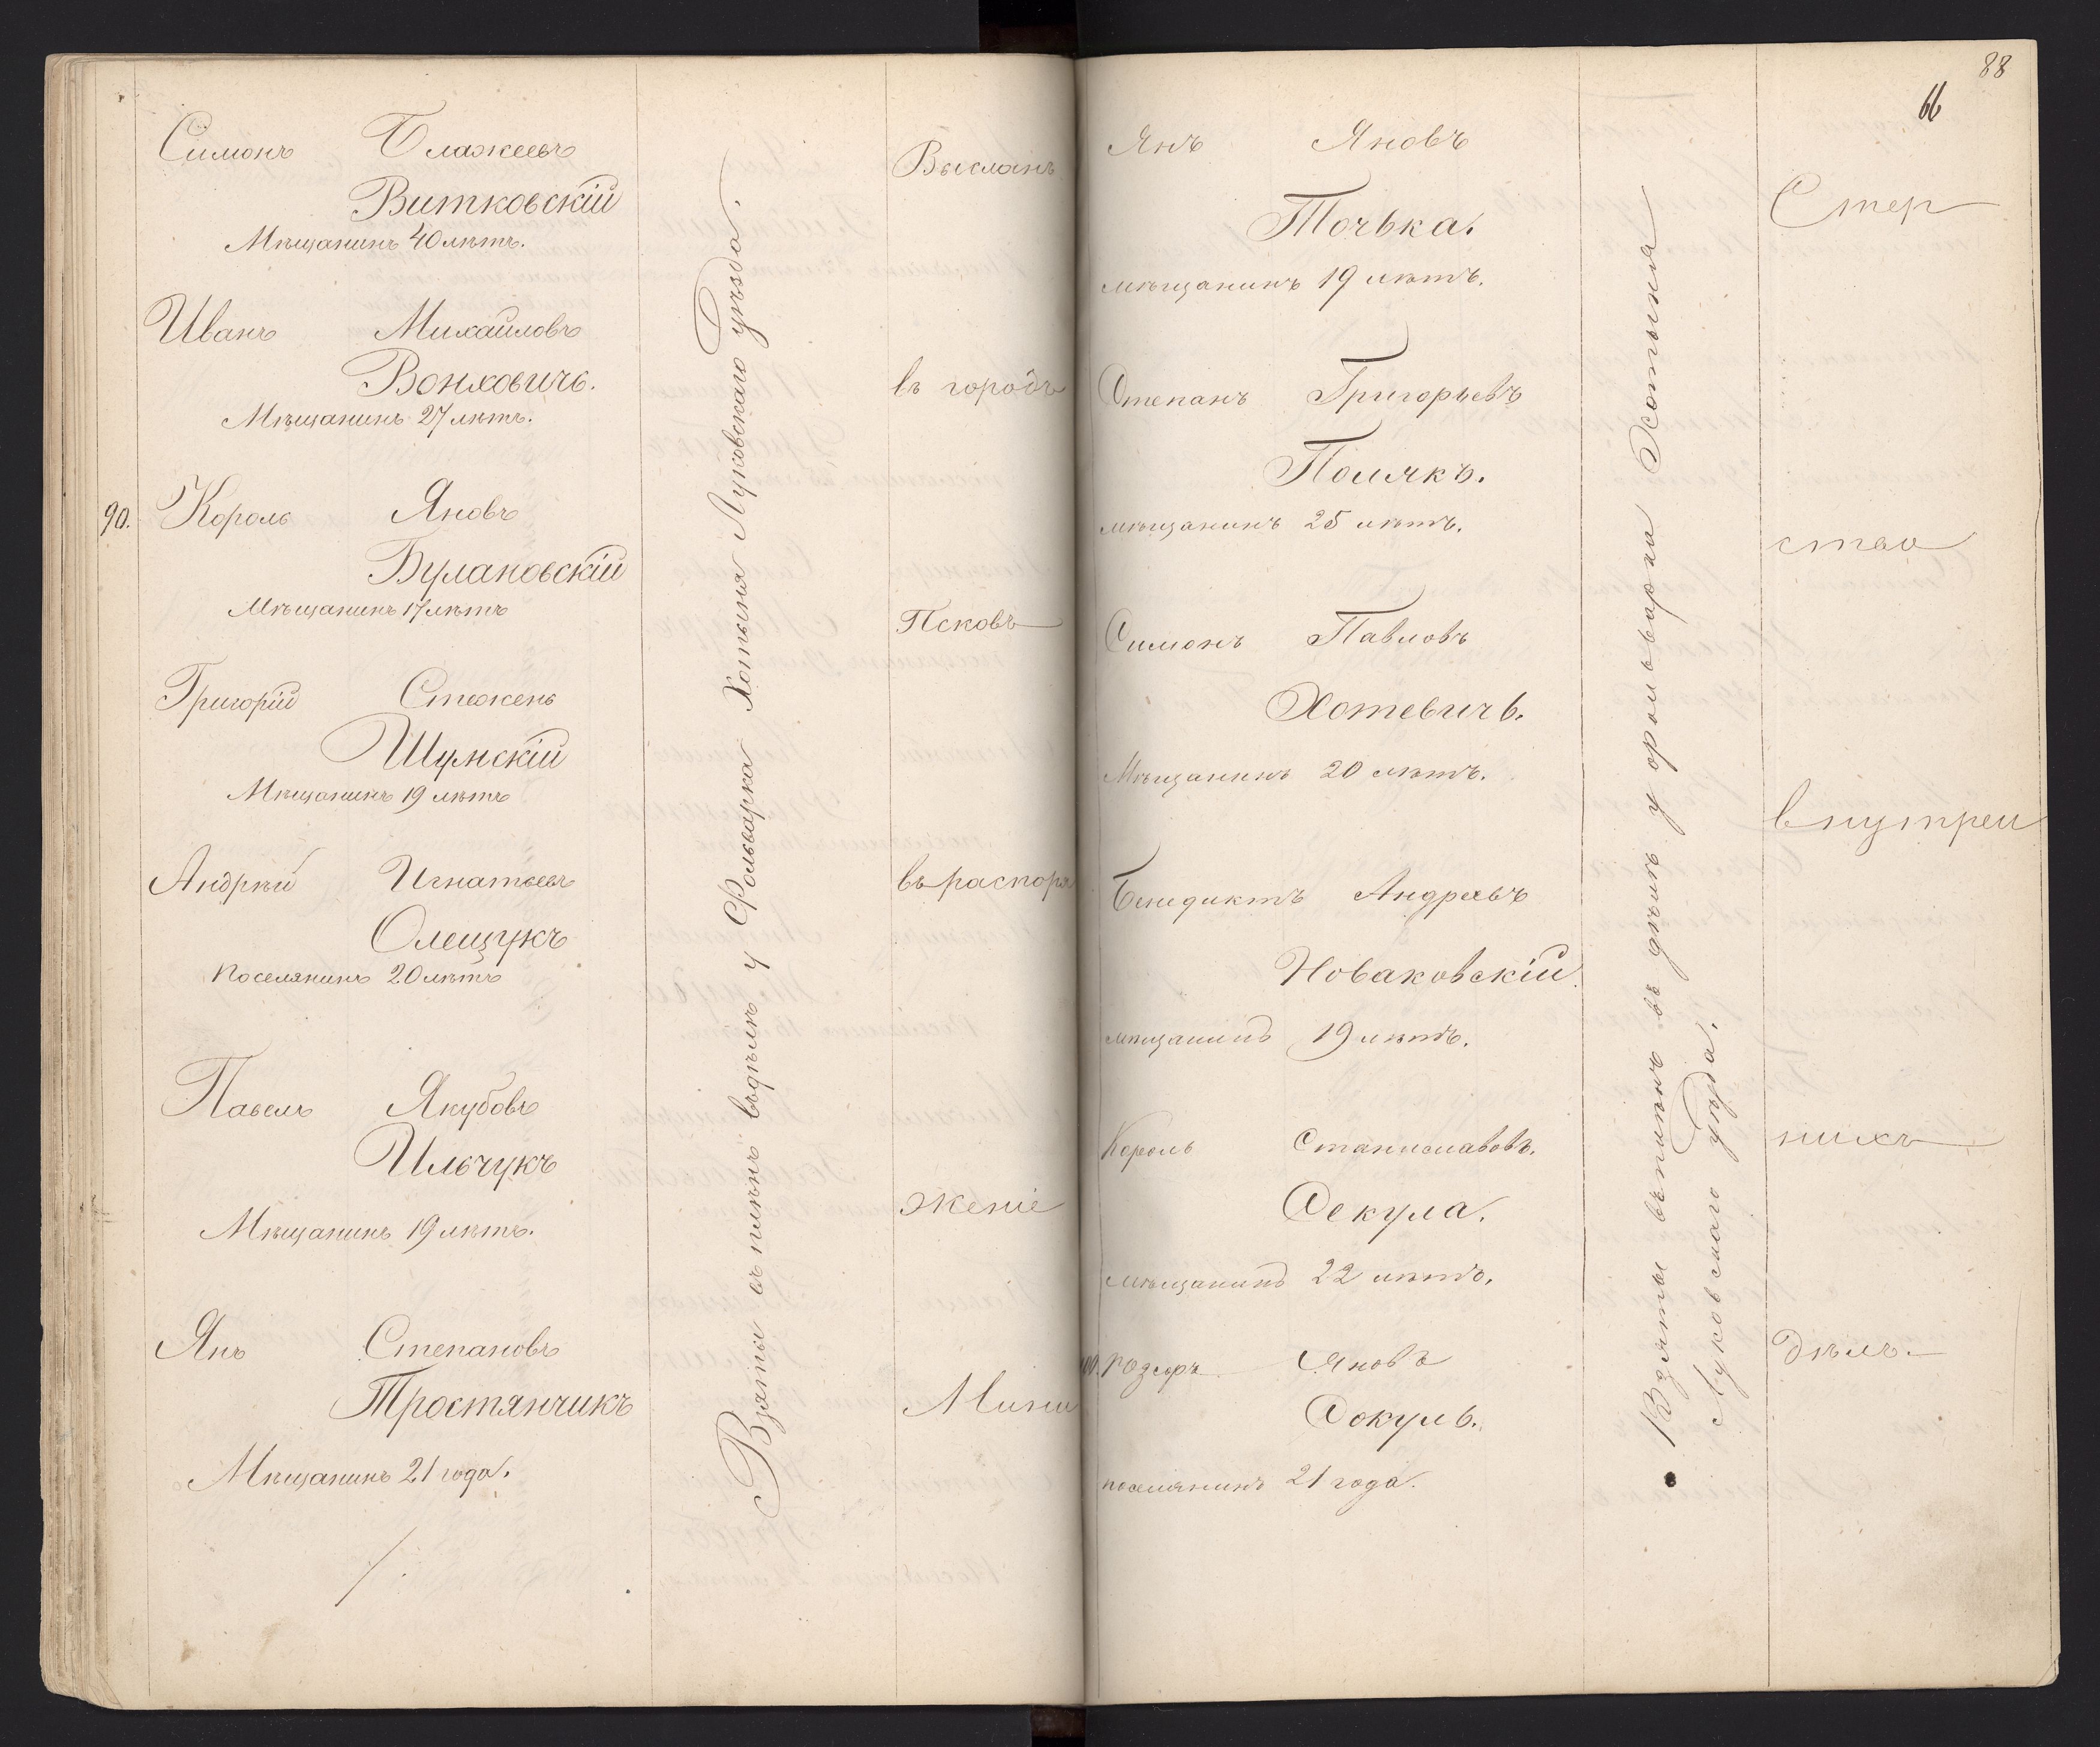 Симонъ Блажеевъ
Витковскій
Мѣщанинъ 40 лѣтъ.
Иванъ Михайловъ
Вонховичъ.
Мѣщанинъ 27 лѣтъ.
90. Король Яновъ
Булановскій
Мѣщанинъ 17 лѣтъ
Григорій Стежень
Шумскій
Мѣщанинъ 19 лѣтъ
Андрей Игнатьевъ
Олещукъ
Поселянинъ 20 лѣтъ
Павелъ Якубовъ
Ильчукъ
Мѣщанинъ 19 лѣтъ.
Янъ Степановъ
Тростянчикъ
Мѣщанинъ 21 года.
Взяты въ плѣнъ въ дѣлѣ у Фольварка Хотыня Луковскаго уѣзда.
Высланъ
въ городъ
Псковъ
въ распоря
женіе
Мини
88
66
Янъ Яновъ
Точька.
мѣщанинъ 19 лѣтъ.
Степанъ Григорьевъ
Полякъ.
мѣщанинъ 25 лѣтъ.
Симонъ Павловъ
Хотевичъ.
Мѣщанинъ 20 лѣтъ.
Бенедиктъ Андреевъ
Новаковскій.
мѣщанинъ 19 лѣтъ.
Король Станиславовъ.
Секула.
мѣщанинъ 22 лѣтъ.
Юзефъ Яновъ
Сокулъ.
поселянинъ 21 года.
Взяты въ плѣнъ въ дѣлѣ у фольварка Хотыня
Луковскаго уѣзда.
Стер
ства
внутрен
нихъ
дѣлъ.